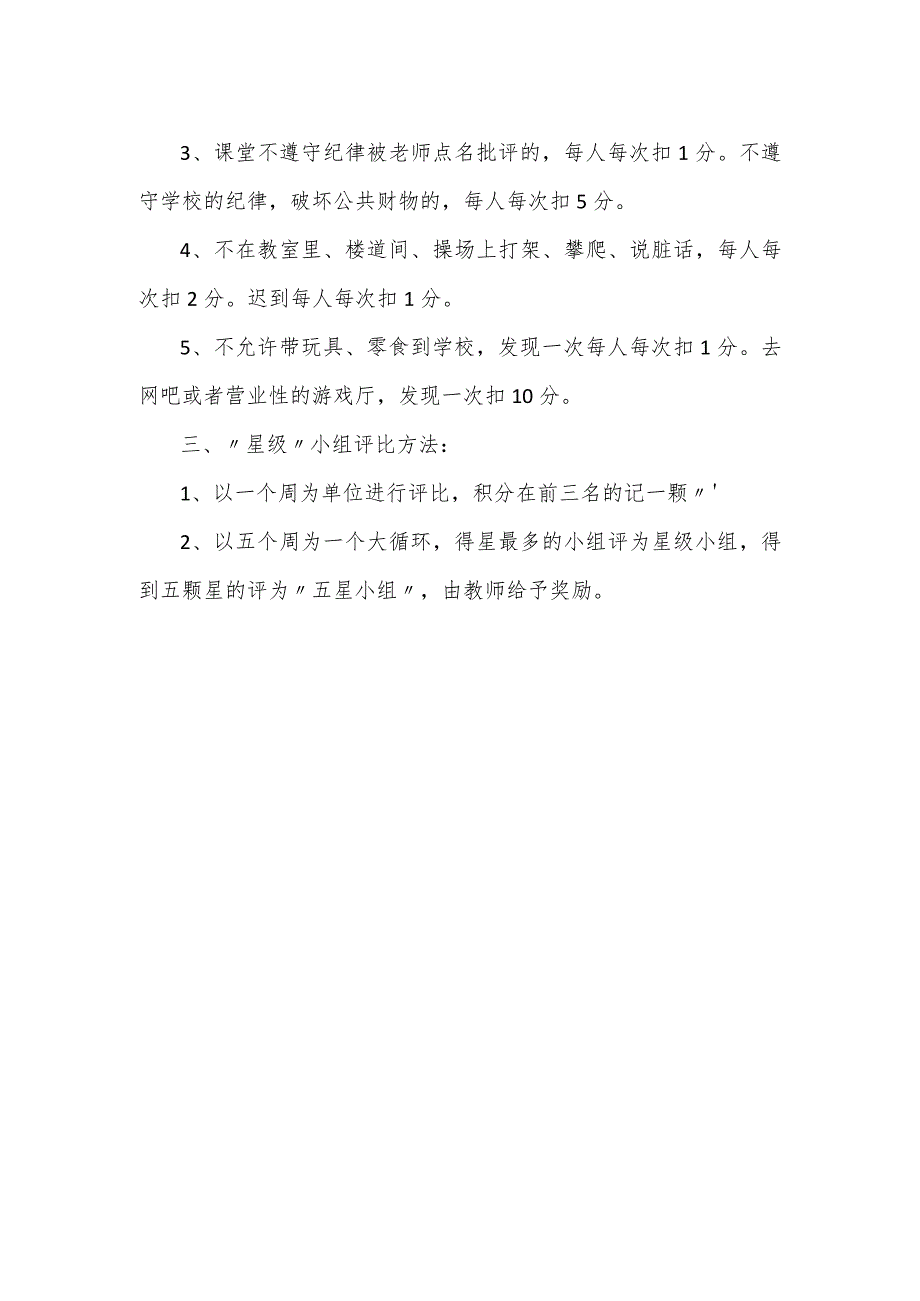 3、课堂不遵守纪律被老师点名批评的，每人每次扣 1 分。不遵
守学校的纪律，破坏公共财物的，每人每次扣 5 分。
4、不在教室里、楼道间、操场上打架、攀爬、说脏话，每人每
次扣 2 分。迟到每人每次扣 1 分。
5、不允许带玩具、零食到学校，发现一次每人每次扣 1 分。去
网吧或者营业性的游戏厅，发现一次扣 10 分。
三、〃星级〃小组评比方法：
1、以一个周为单位进行评比，积分在前三名的记一颗〃'
2、以五个周为一个大循环，得星最多的小组评为星级小组，得
到五颗星的评为〃五星小组〃，由教师给予奖励。